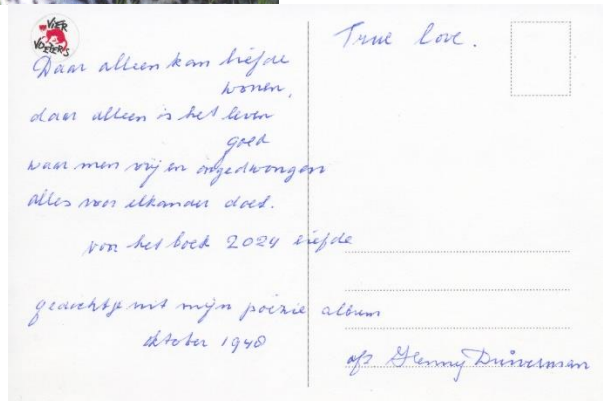 VIER
VOETERS
True love.
Daar alleen kan liefde
wonen,
daar alleen is het leven
goed
waar men vrij en ongedwongen
alles voor elkander doet.
voor het boek 2024 liefde
gedichtje uit mijn poëzie album
oktober 1948
afz